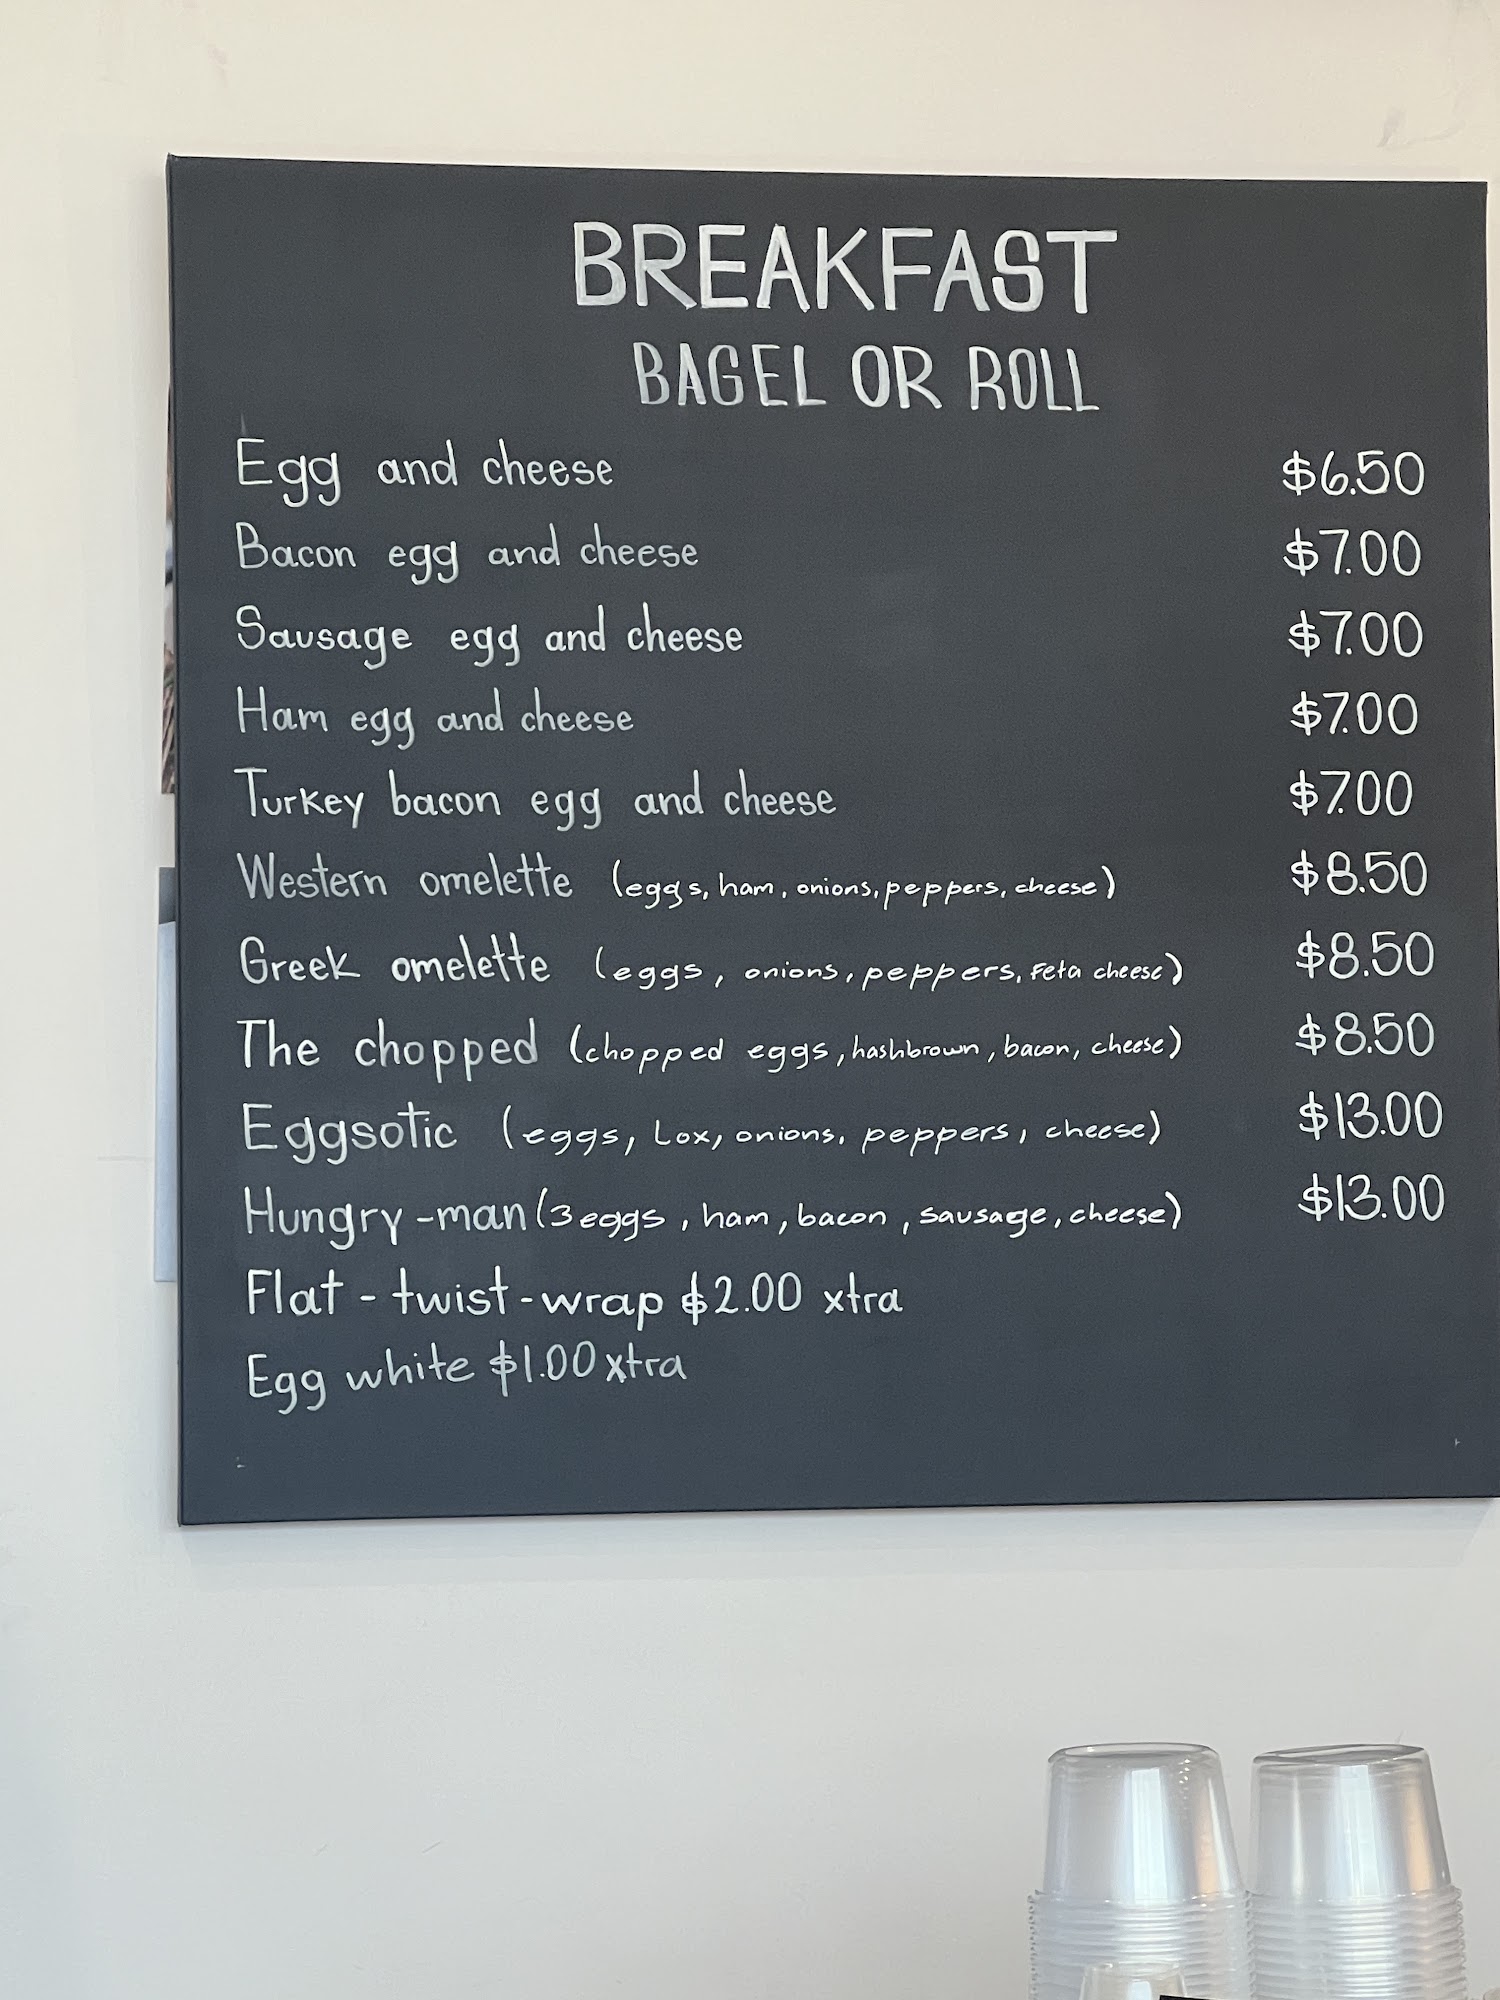 BREAKFAST
BAGEL OR ROLL
Egg and cheese $6.50
Bacon egg and cheese $7.00
Sausage egg and cheese $7.00
Ham egg and cheese $7.00
Turkey bacon egg and cheese $7.00
Western omelette (eggs, ham, onions, peppers, cheese) $8.50
Greek omelette (eggs, onions, peppers, Feta cheese) $8.50
The chopped (chopped eggs, hashbrown, bacon, cheese) $8.50
Eggsotic (eggs, Lox, onions, peppers, cheese) $13.00
Hungry-man (3 eggs, ham, bacon, sausage, cheese) $13.00
Flat - twist - wrap $2.00 xtra
Egg white $1.00 xtra